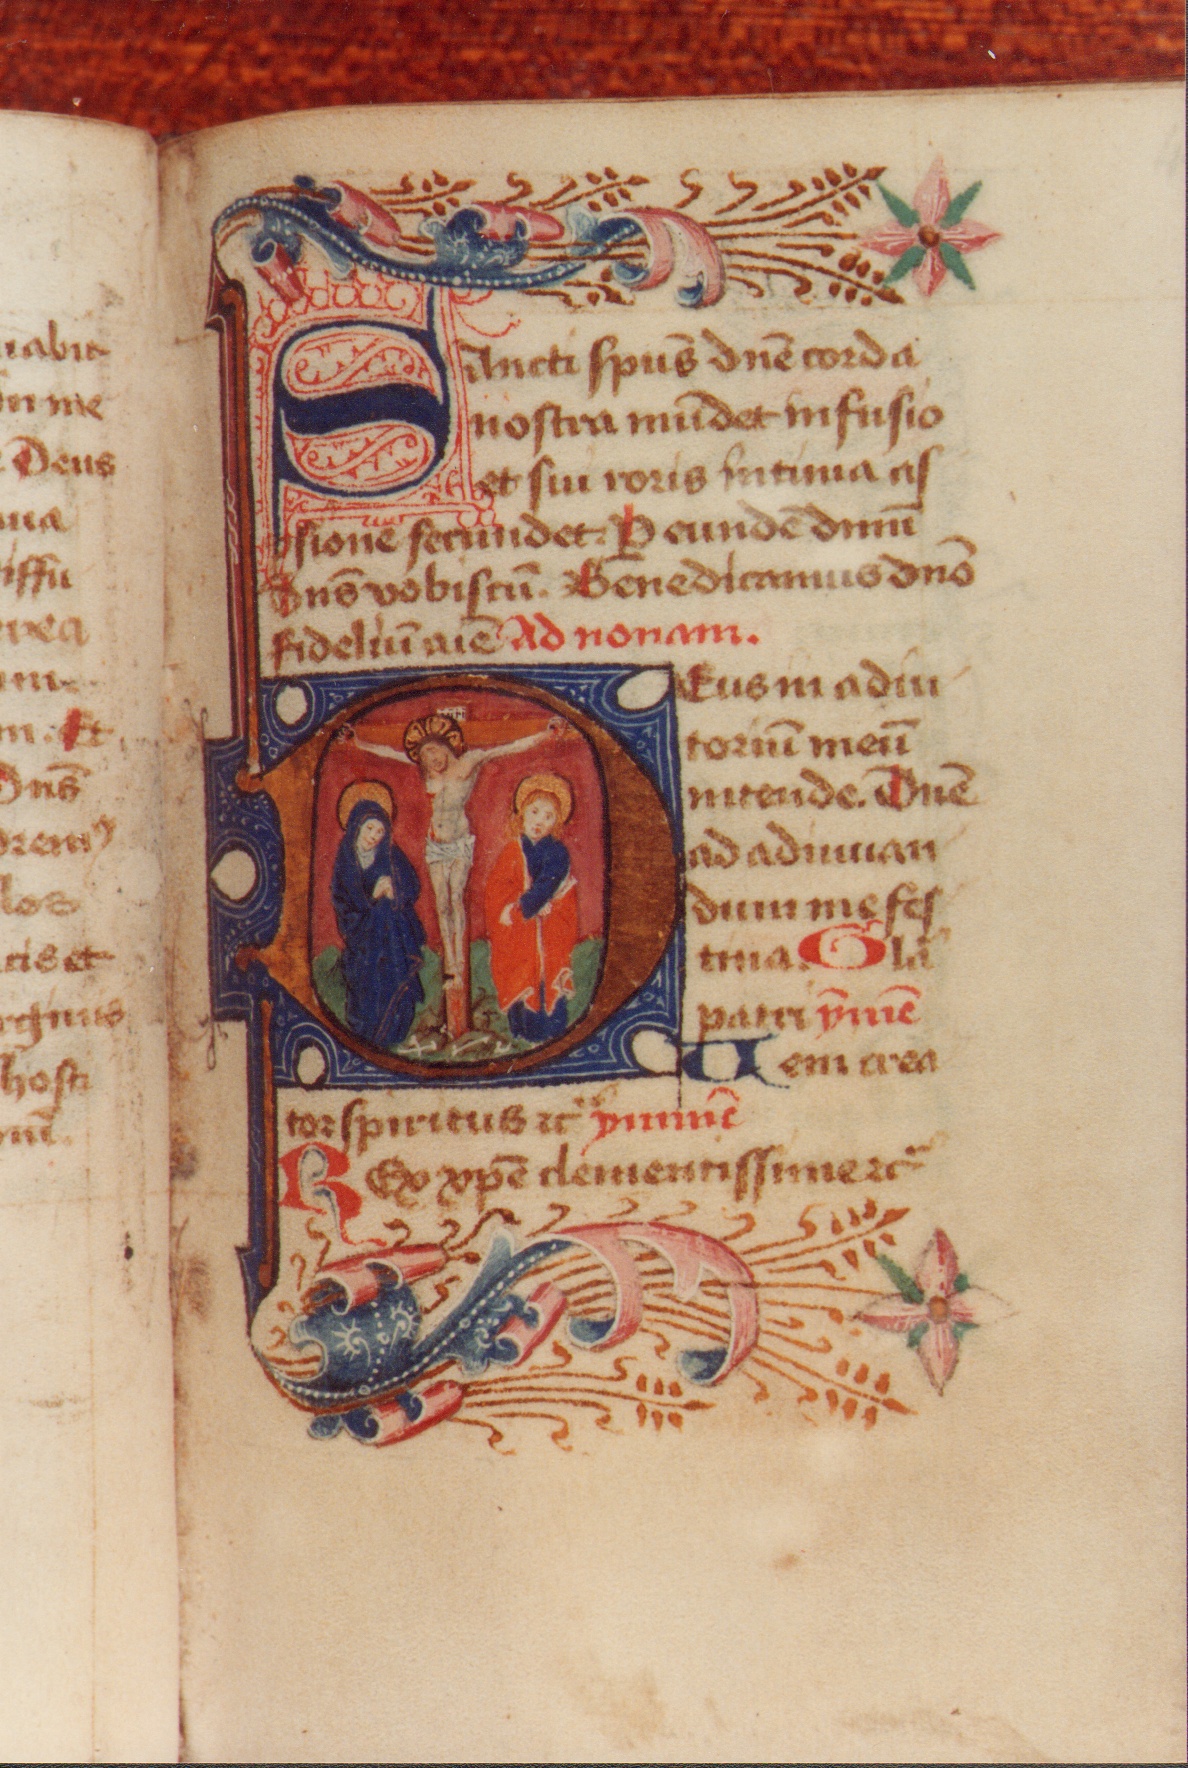 uabit
dn me
Deus
qua
diffu
erea
um
m. Et
Dns
drem
los
ctis et
rginis
hosti
Sancti spūs dnē corda
nostra mūdet infusio
et sui roris intima as
psione fecundet. P eundē dnm̄
Dns̄ vobiscū. Benedicamus dnō
fideliū aīē Ad nonam.
Deus in adiu
toriū meū
intende. Dnē
ad adiuuan
dum me fes
tina. Glā
patri ymnē
Uem crea
tor spiritus ꝛc̄ ymnnē
Rex xp̄e clementissime ꝛc̄